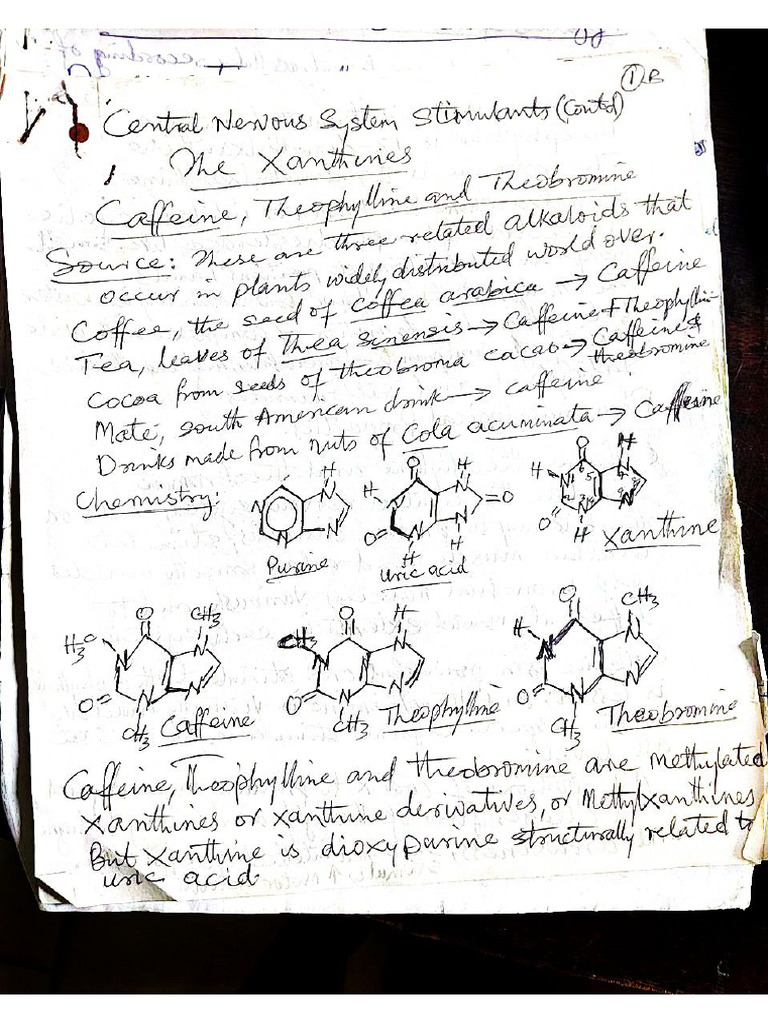 ①B
Central Nervous System Stimulants (Contd)
The Xanthines
Caffeine, Theophylline and Theobromine
Source: These are three related alkaloids that
occur in plants widely distributed world over.
Coffee, the seed of Coffea arabica → Caffeine
Tea, leaves of Thea sinensis → Caffeine + Theophylline
Cocoa from seeds of theobroma cacao → Caffeine & theobromine
Mate, South American drink → caffeine
Drinks made from nuts of Cola acuminata → Caffeine
Chemistry:
N N N N H
Purine
O H N N N N H H H O O
Uric acid
O H N N N N H H O 1 2 3 4 5 6
Xanthine
O CH3 H3C N N N N O CH3
Caffeine
O H CH3 N N N N O CH3
Theophylline
O CH3 H N N N N O CH3
Theobromine
Caffeine, Theophylline and theobromine are methylated
Xanthines or xanthine derivatives, or Methylxanthines
But Xanthine is dioxypurine structurally related to
uric acid.